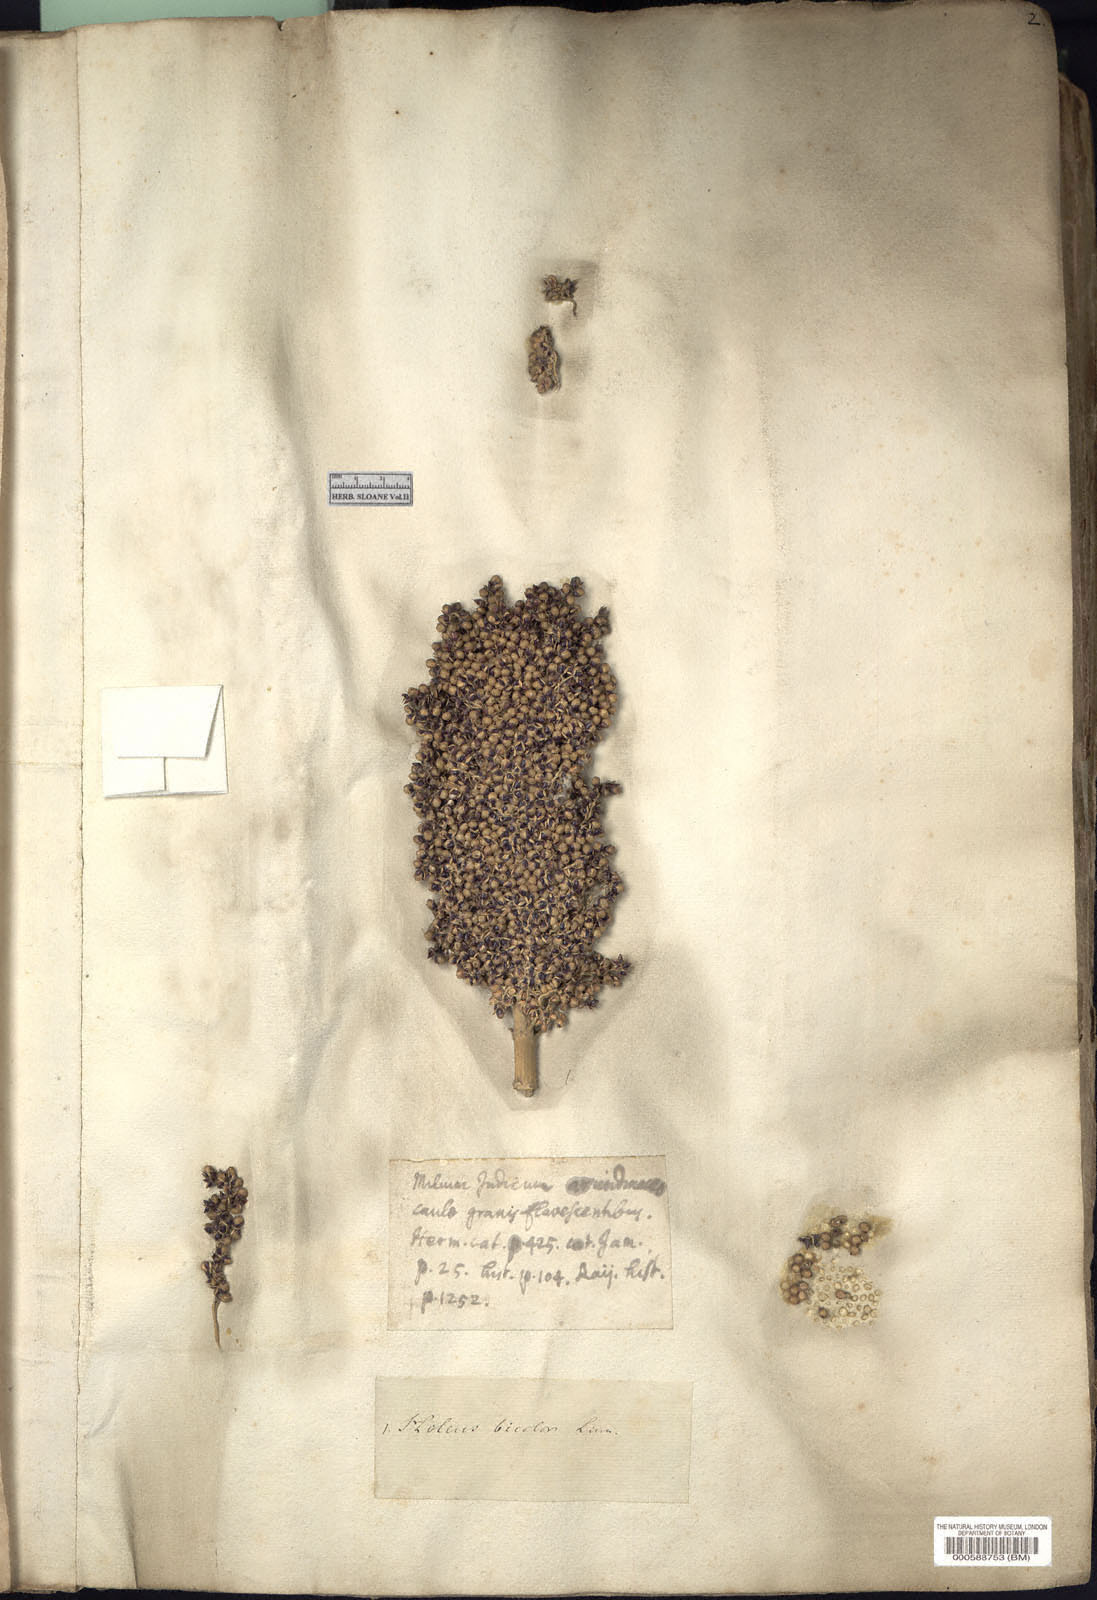 2.
HERB. SLOANE Vol.II
1
Milium Indicum arundinaceo
caule granis flavescentibus.
Herm. cat. p. 425. cat. Jam.
p. 25. hist. p. 104. Raij. hist.
p. 1252.
1. Holcus bicolor Linn.
THE NATURAL HISTORY MUSEUM, LONDON
DEPARTMENT OF BOTANY
000588753 (BM)